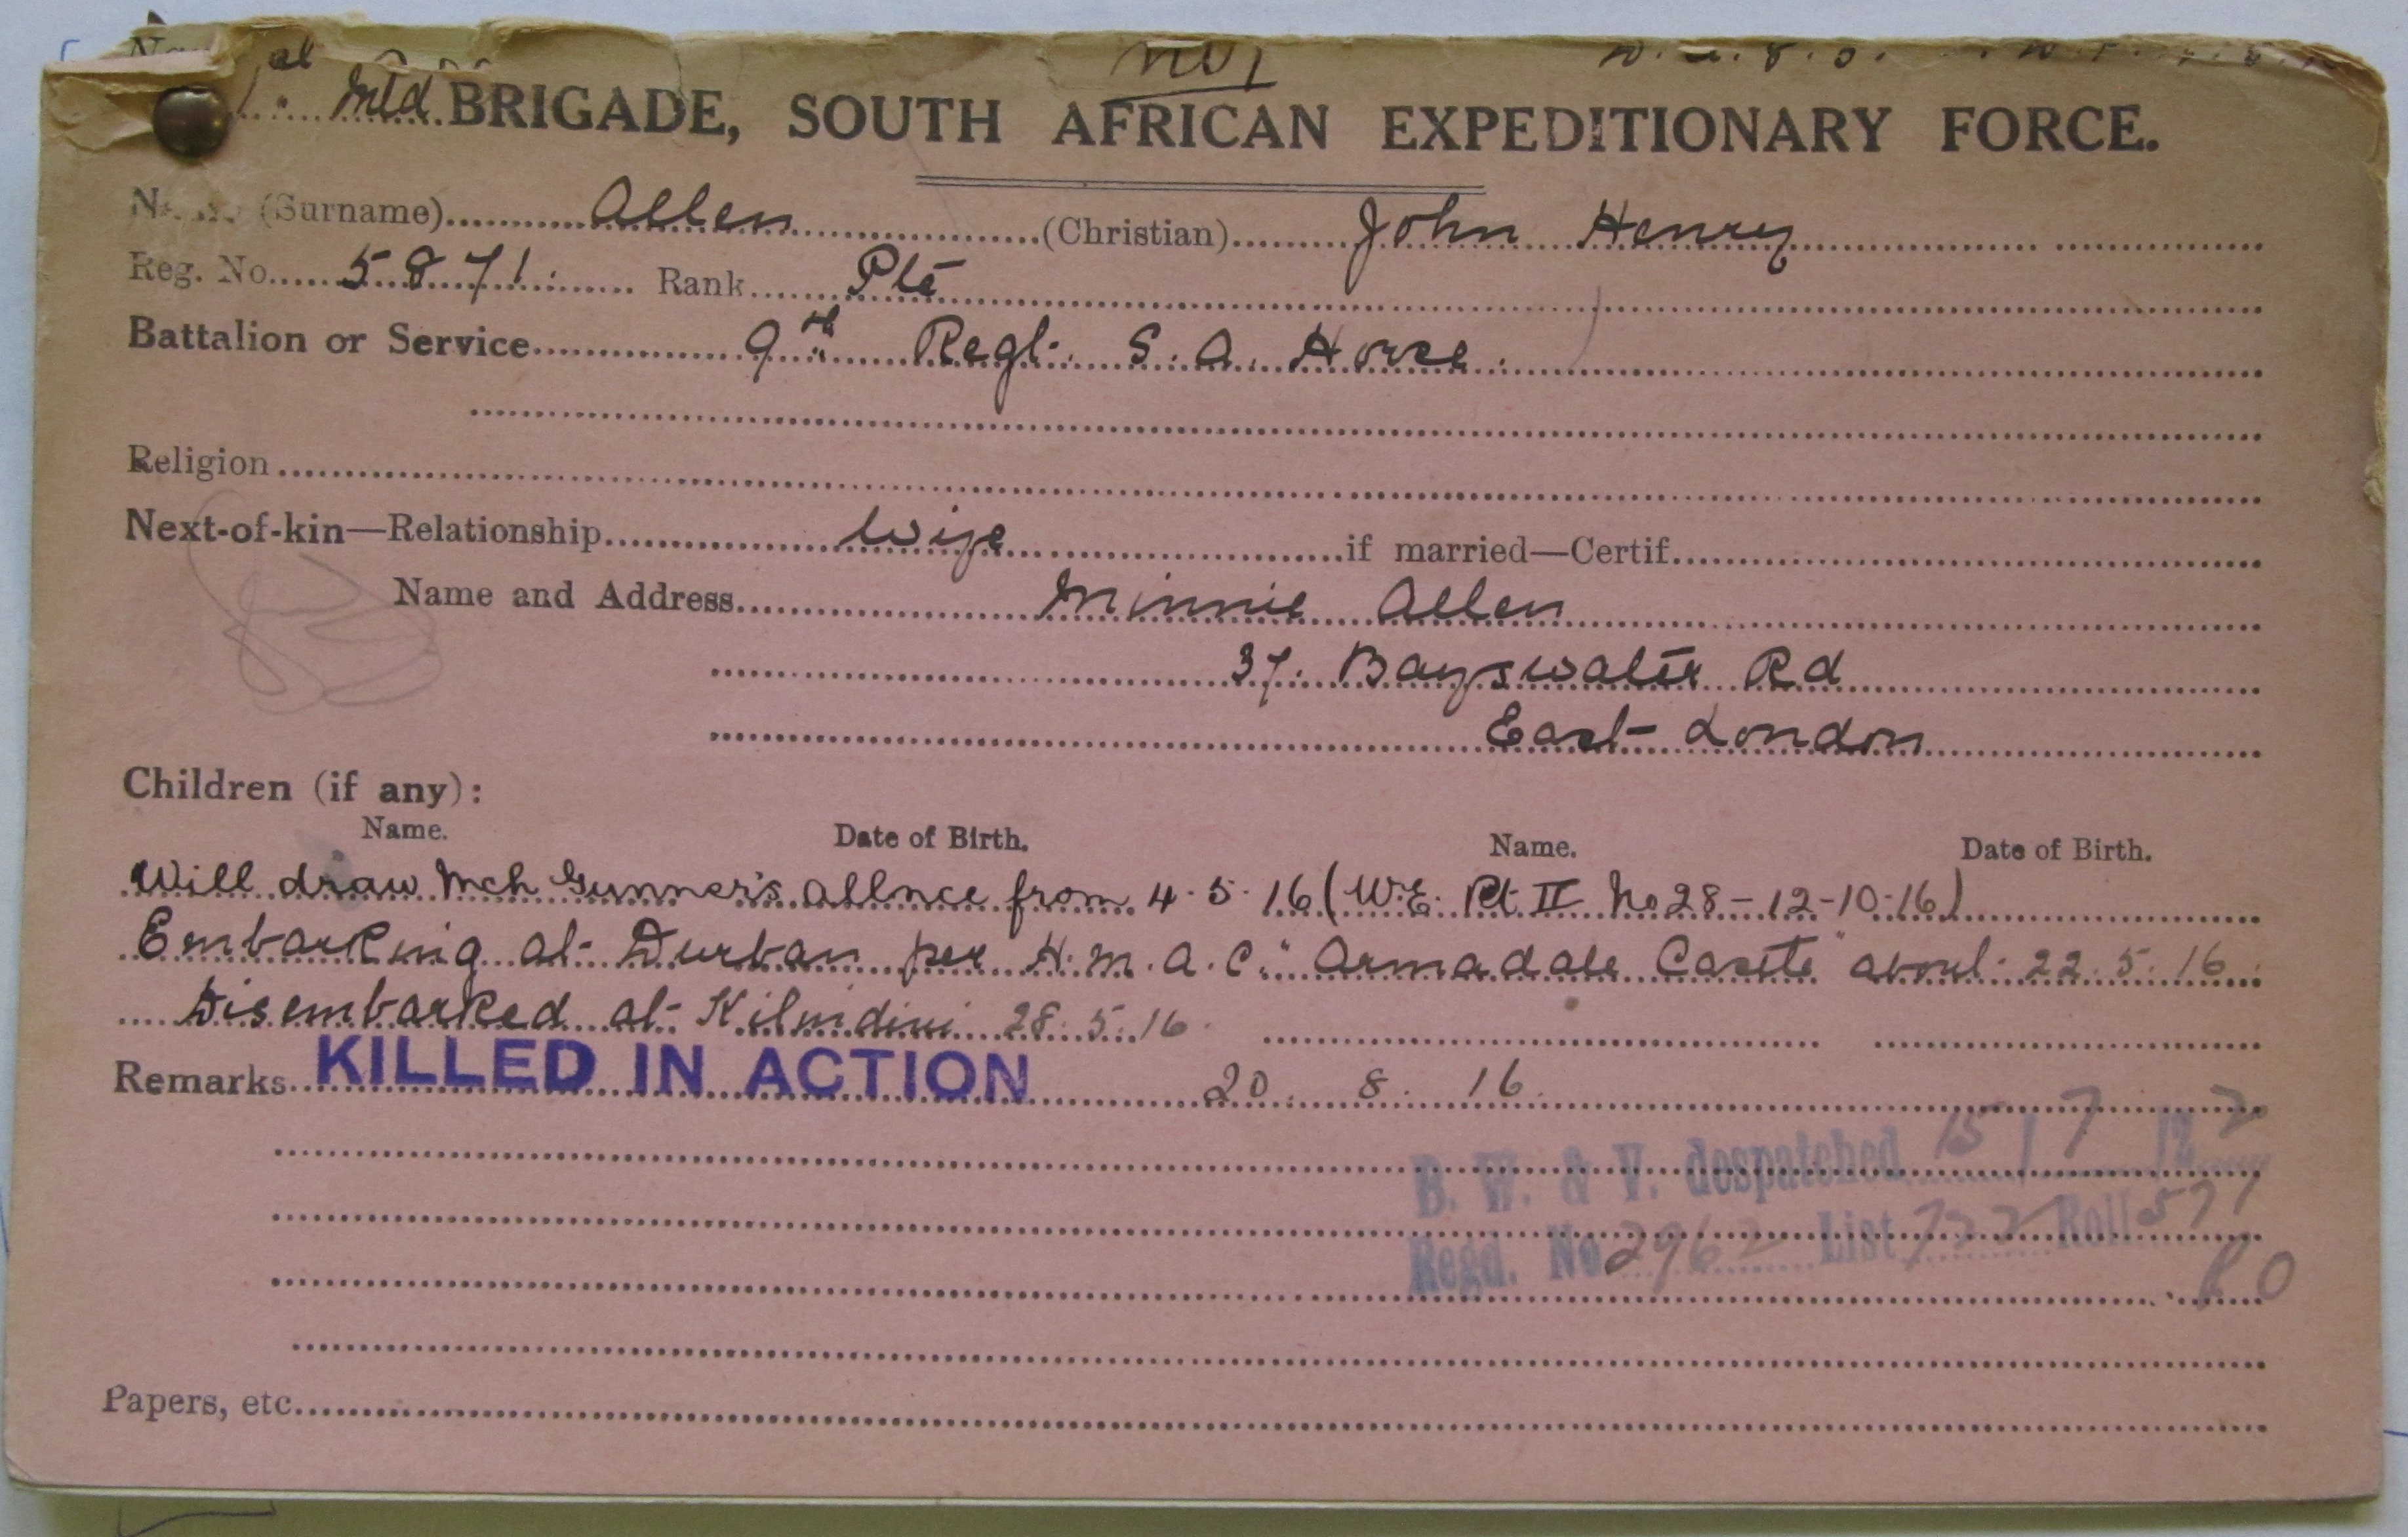 1st Mtd BRIGADE, SOUTH AFRICAN EXPEDITIONARY FORCE.
Name (Surname) Allen (Christian) John Henry
Reg. No. 5871. Rank Pte
Battalion or Service 9th Regt. S. A. Horse.
Religion
Next-of-kin—Relationship Wife if married—Certif.
Name and Address Minnie Allen
37. Bayswater Rd
East London
Children (if any):
Name. Date of Birth. Name. Date of Birth.
Will draw Mch Gunner's allnce from 4.5.16 (W.E. Pt II No 28-12-10-16)
Embarking at Durban per H.M.A.C. "Armadale Castle" about 22.5.16
Disembarked at Kilindini 28.5.16.
Remarks KILLED IN ACTION 20. 8. 16.
B. W. & V. despatched 15/7/22
Regd. No 2962 List 722 Roll 577
Papers, etc.